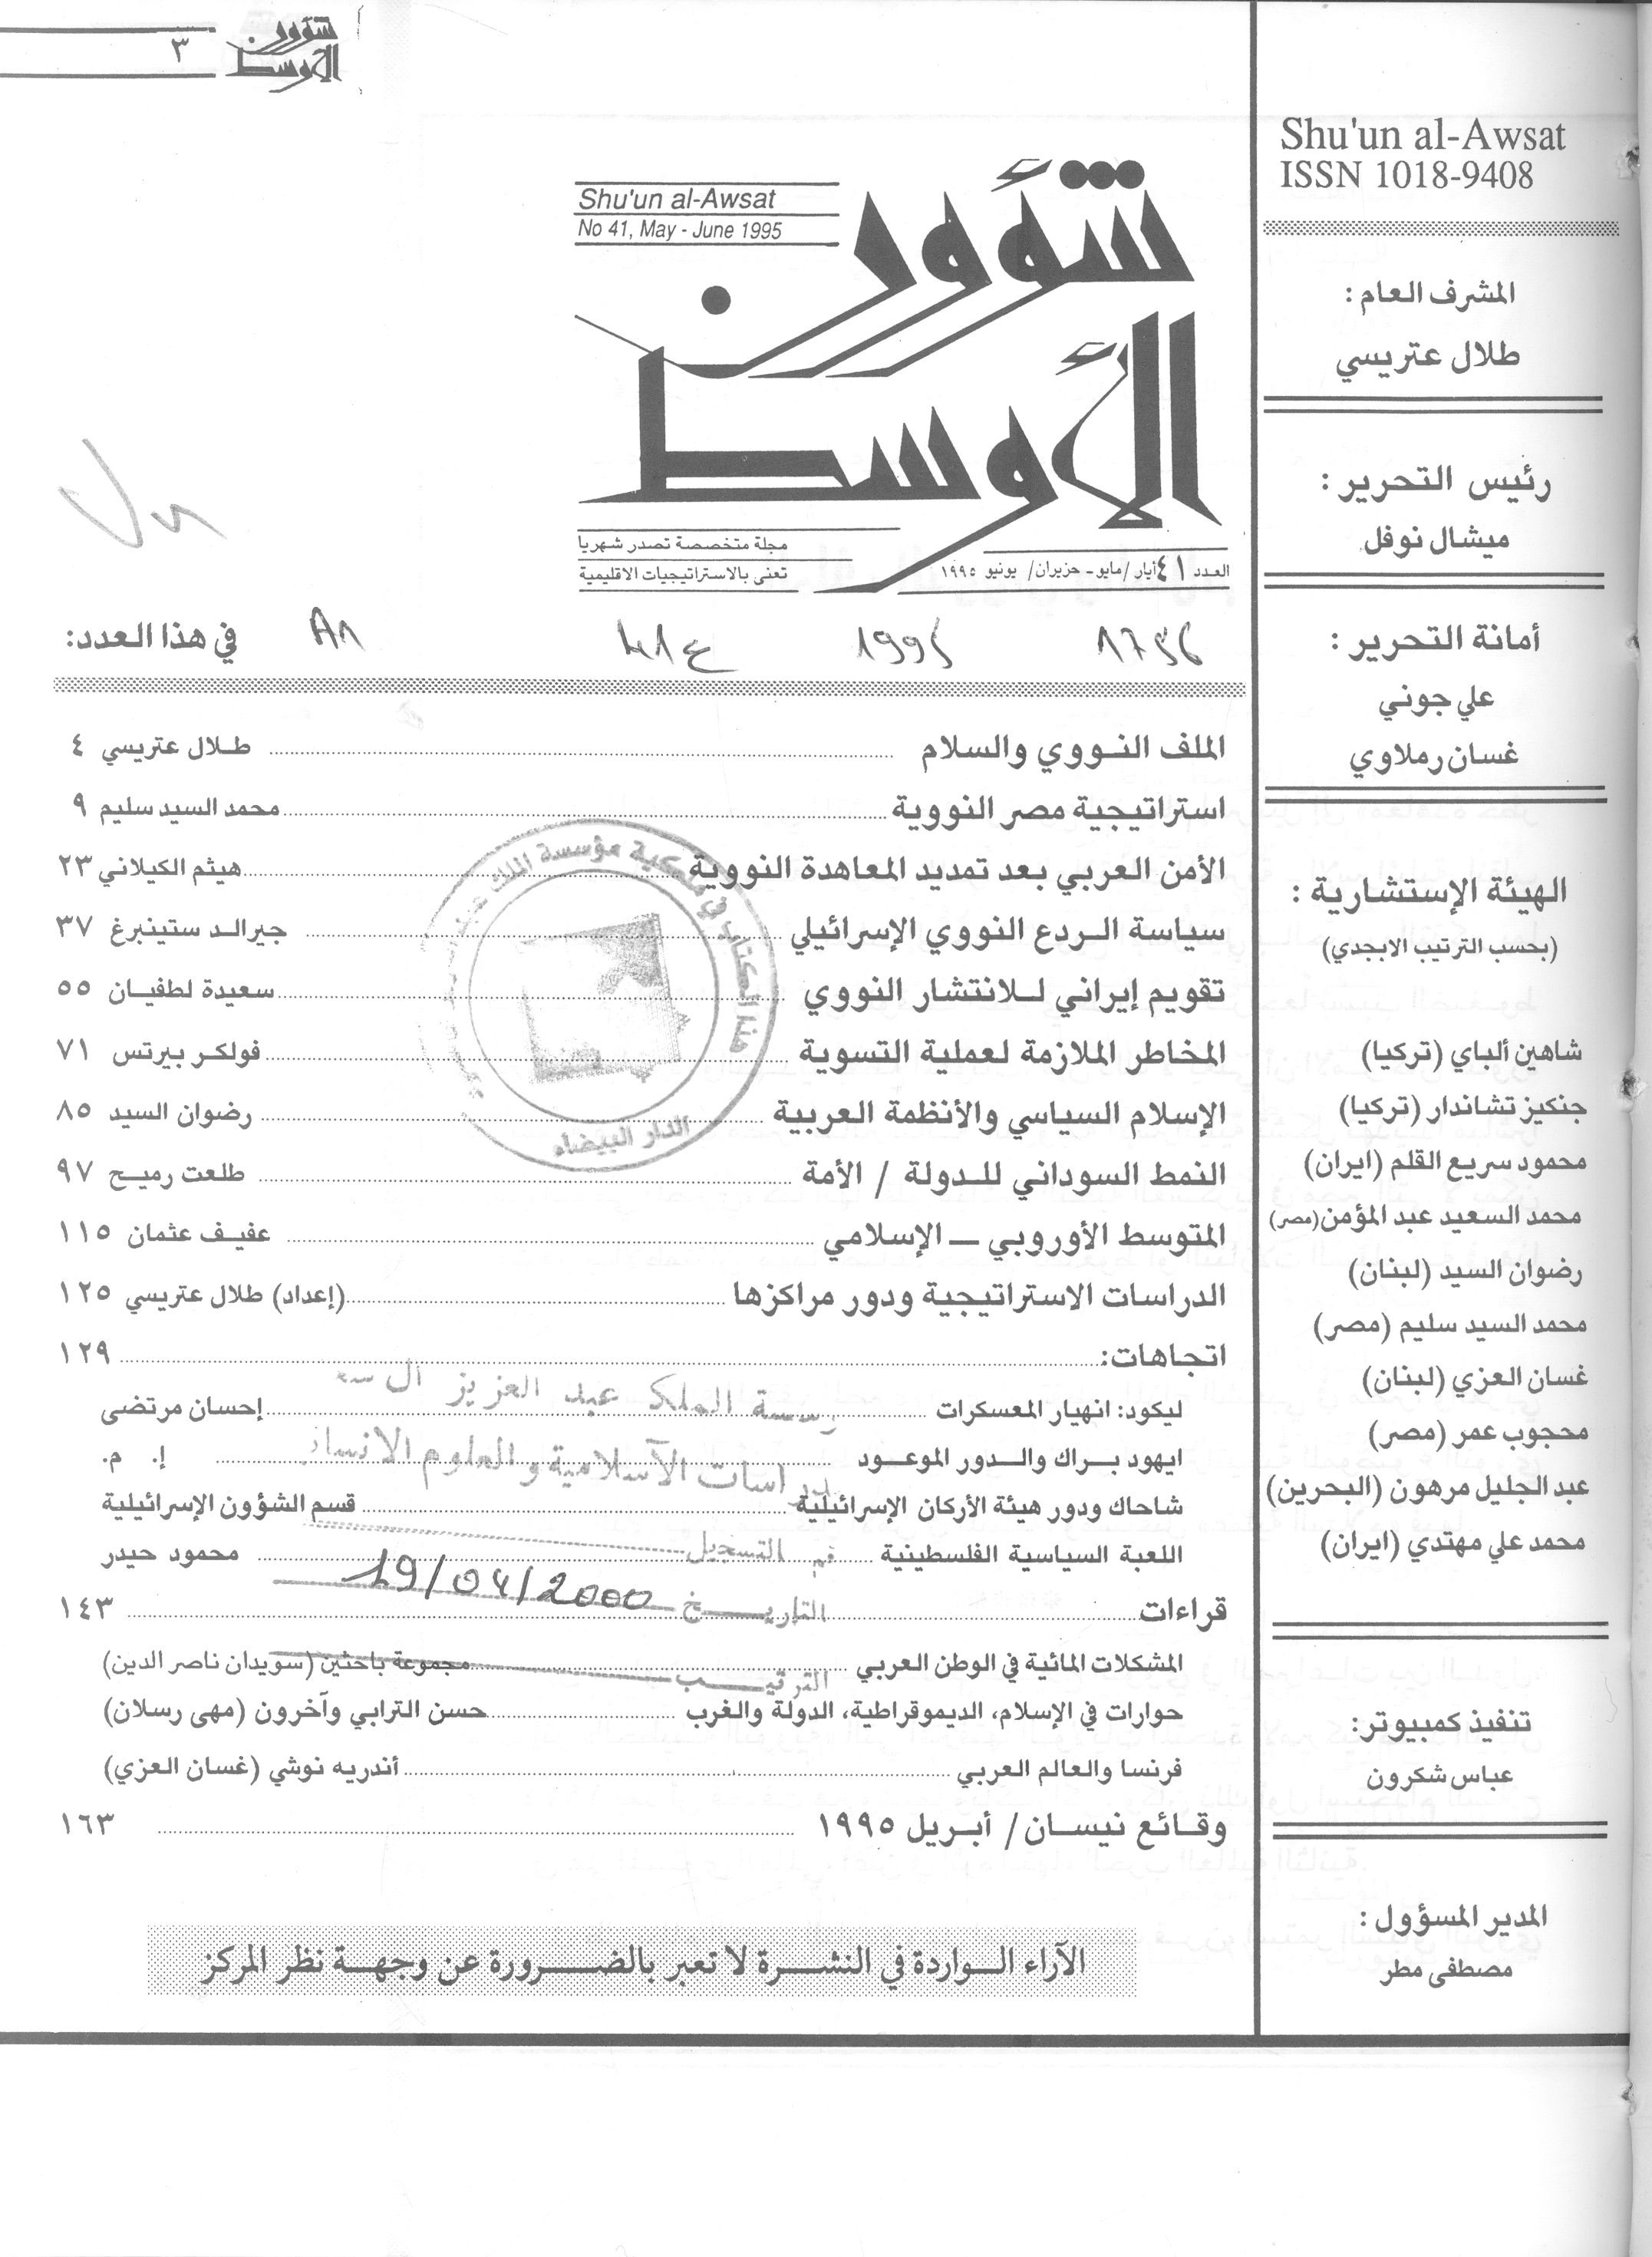 شؤون الأوسط
٣
Shu'un al-Awsat
ISSN 1018-9408
المشرف العام :
طلال عتريسي
رئيس التحرير :
ميشال نوفل
أمانة التحرير :
علي جوني
غسان رملاوي
الهيئة الإستشارية :
(بحسب الترتيب الابجدي)
شاهين ألباي (تركيا)
جنكيز تشاندار (تركيا)
محمود سريع القلم (ايران)
محمد السعيد عبد المؤمن (مصر)
رضوان السيد (لبنان)
محمد السيد سليم (مصر)
غسان العزي (لبنان)
محجوب عمر (مصر)
عبد الجليل مرهون (البحرين)
محمد علي مهتدي (ايران)
تنفيذ كمبيوتر:
عباس شكرون
المدير المسؤول :
مصطفى مطر
Shu'un al-Awsat
No 41, May - June 1995
شؤون
الأوسط
مجلة متخصصة تصدر شهريا
تعنى بالاستراتيجيات الاقليمية
العدد ٤١ أيار /مايو- حزيران/ يونيو ١٩٩٥
1995
في هذا العدد:
الملف النووي والسلام ........ طلال عتريسي ٤
استراتيجية مصر النووية ........ محمد السيد سليم ٩
الأمن العربي بعد تمديد المعاهدة النووية ........ هيثم الكيلاني ٢٣
سياسة الردع النووي الإسرائيلي ........ جيرالد ستينبرغ ٣٧
تقويم إيراني للانتشار النووي ........ سعيدة لطفيان ٥٥
المخاطر الملازمة لعملية التسوية ........ فولكر بيرتس ٧١
الإسلام السياسي والأنظمة العربية ........ رضوان السيد ٨٥
النمط السوداني للدولة / الأمة ........ طلعت رميح ٩٧
المتوسط الأوروبي ـ الإسلامي ........ عفيف عثمان ١١٥
الدراسات الاستراتيجية ودور مراكزها ........ (إعداد) طلال عتريسي ١٢٥
اتجاهات: ........ ١٢٩
ليكود: انهيار المعسكرات ........ إحسان مرتضى
ايهود براك والدور الموعود ........ إ. م.
شاحاك ودور هيئة الأركان الإسرائيلية ........ قسم الشؤون الإسرائيلية
اللعبة السياسية الفلسطينية ........ محمود حيدر
قراءات ........ ١٤٣
المشكلات المائية في الوطن العربي ........ مجموعة باحثين (سويدان ناصر الدين)
حوارات في الإسلام، الديموقراطية، الدولة والغرب ........ حسن الترابي وآخرون (مهى رسلان)
فرنسا والعالم العربي ........ أندريه نوشي (غسان العزي)
وقائع نيسان/ أبريل ١٩٩٥ ........ ١٦٣
الدار البيضاء
الملك عبد العزيز آل
الاسلامية والعلوم
التسجيل
التاريخ 19/04/2000
الترتيب
الآراء الواردة في النشرة لا تعبر بالضرورة عن وجهة نظر المركز